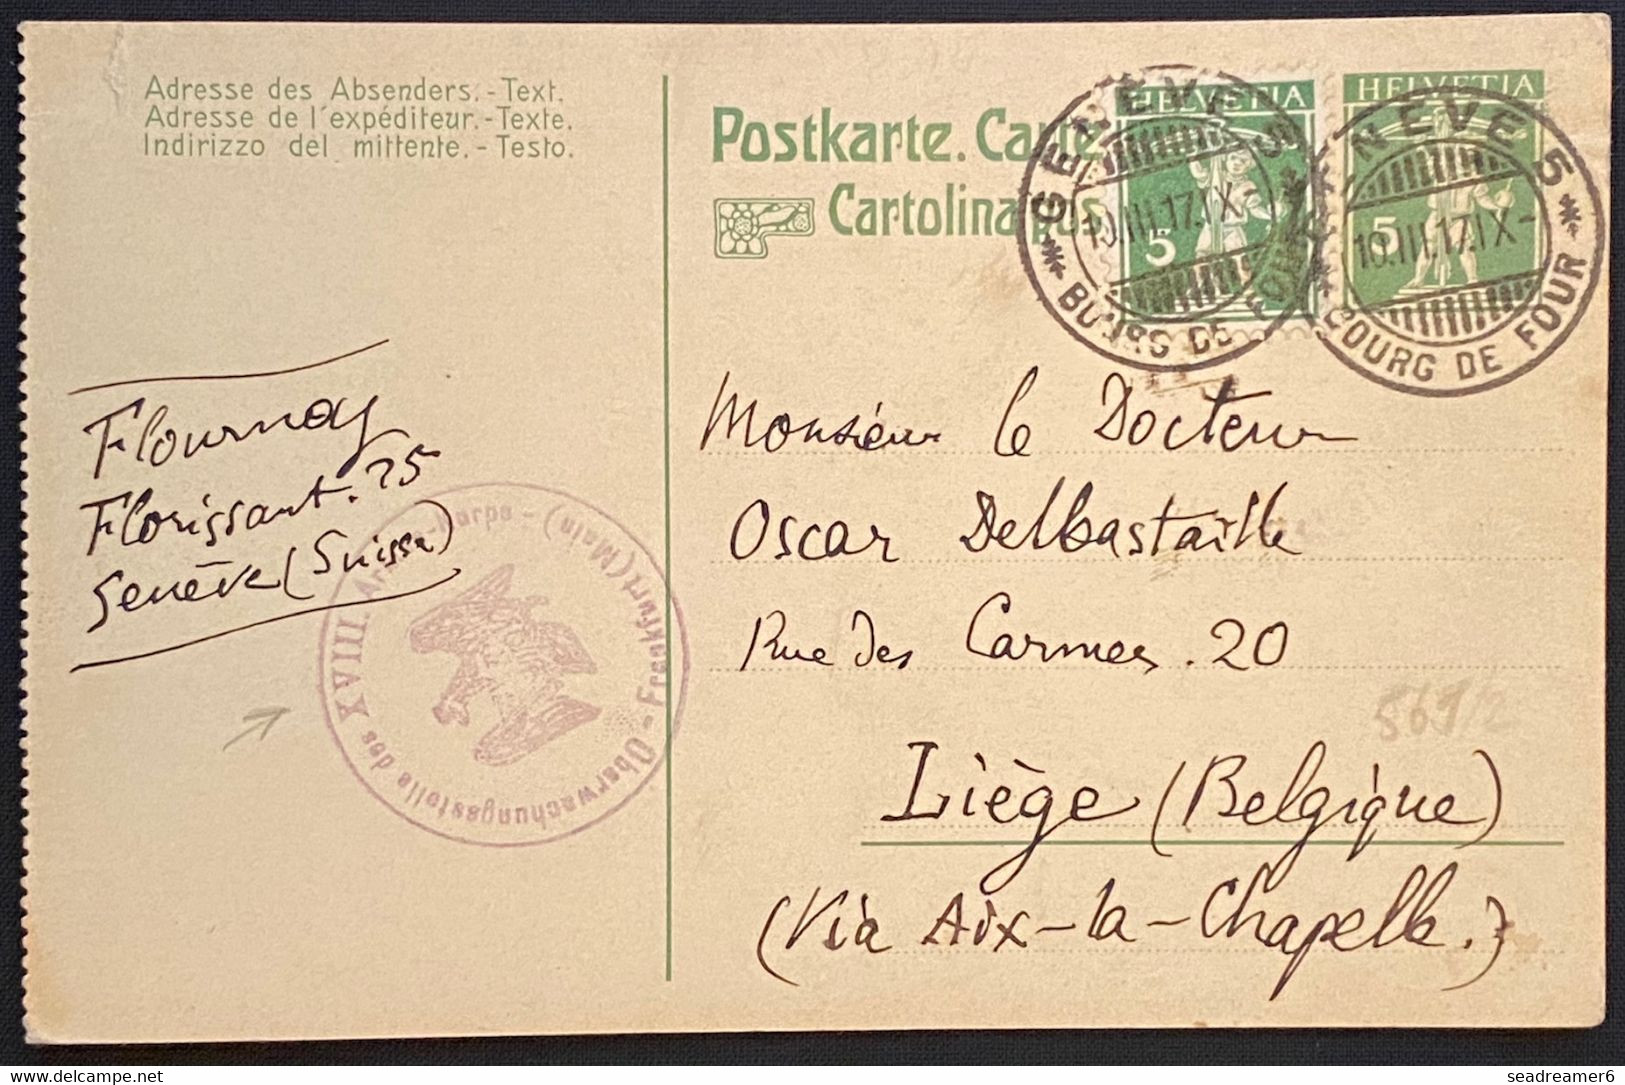 Adresse des Absenders.-Text.
Adresse de l'expéditeur.-Texte.
Indirizzo del mittente.-Testo.
Postkarte. Carte
Cartolina pos
HELVETIA
5
HELVETIA
5
GENEVE
10.III.17.IX-
BOURG DE FOUR
GENEVE 5
10.III.17.IX-
BOURG DE FOUR
Flournoy
Florissant. 25
Genève (Suisse)
Überwachungsstelle des XVIII. Armee-Korps - Frankfurt (Main) -
Monsieur le Docteur
Oscar Delbastaille
Rue des Carmes. 20
Liège (Belgique)
(Via Aix-la-Chapelle.)
delcampe.net
seadreamer6